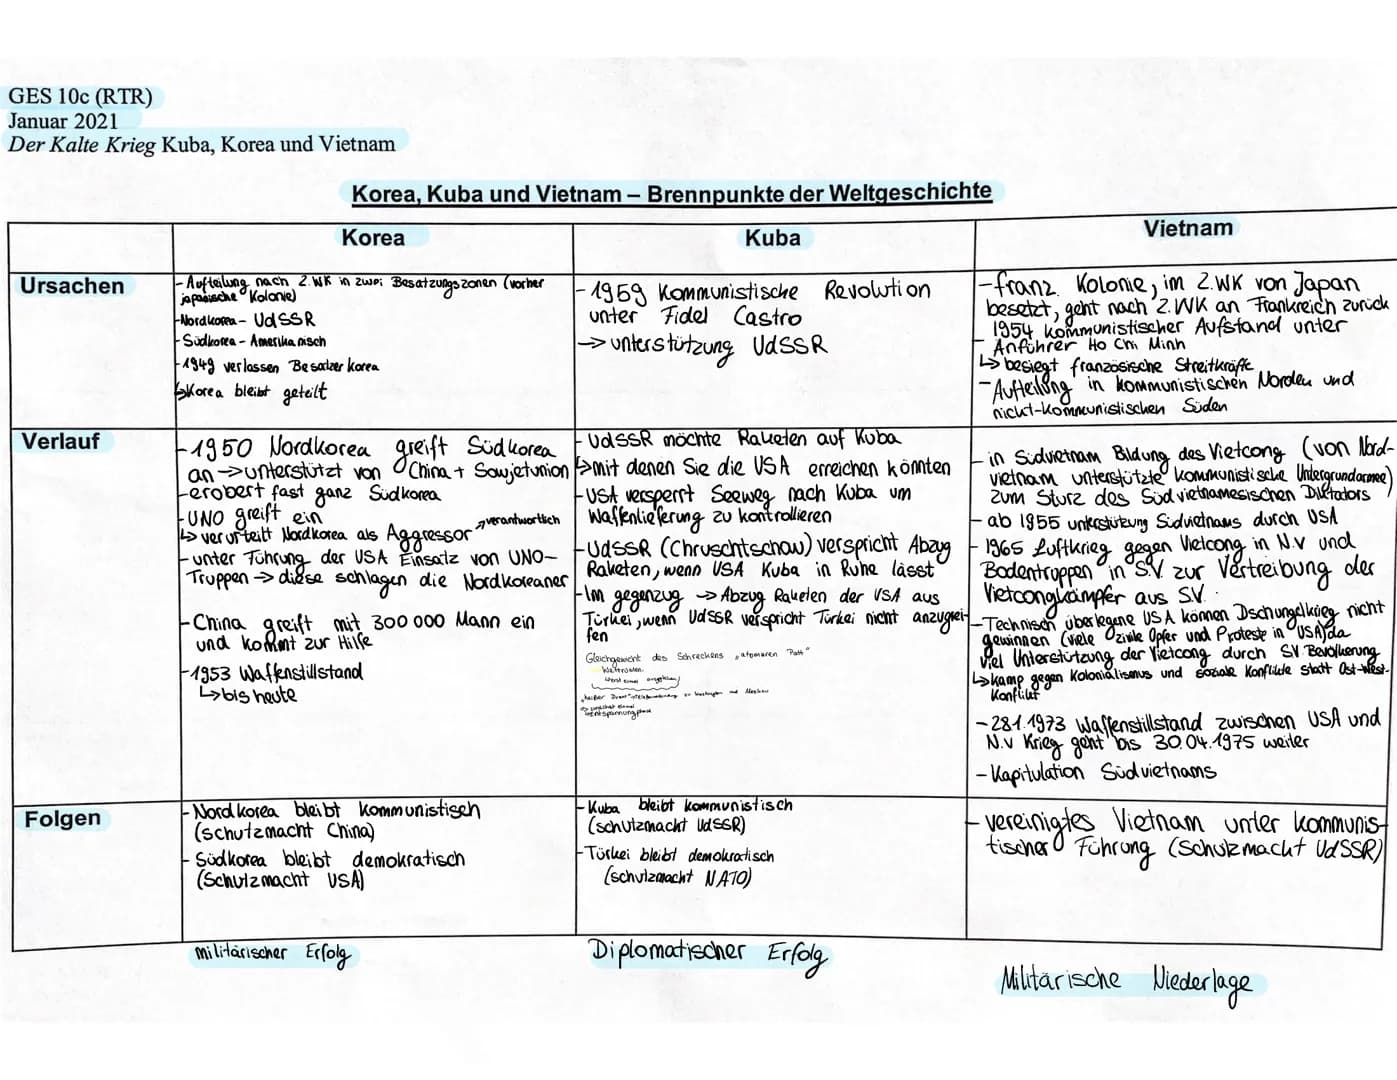 GES 10c (RTR)
Januar 2021
Der Kalte Krieg Kuba, Korea und Vietnam
Korea, Kuba und Vietnam – Brennpunkte der Weltgeschichte
Korea
Kuba
Vietnam
Ursachen
- Aufteilung nach 2.WK in zwei Besatzungszonen (vorher
japanische Kolonie)
-Nordkorea - UdSSR
-Südkorea - Amerikanisch
-1949 verlassen Besatzer Korea
↳Korea bleibt geteilt
- 1959 Kommunistische Revolution
unter Fidel Castro
→ unterstützung UdSSR
-franz. Kolonie, im 2.WK von Japan
besetzt, geht nach 2.WK an Frankreich zurück
1954 kommunistischer Aufstand unter
- Anführer Ho Chi Minh
↳ besiegt französische Streitkräfte
-Aufteilung in kommunistischen Norden und
nicht-kommunistischen Süden
Verlauf
-1950 Nordkorea greift Südkorea
an → unterstützt von China + Sowjetunion
-erobert fast ganz Südkorea
-UNO greift ein
↳ verurteilt Nordkorea als Aggressor → verantwortlich
-unter Führung der USA Einsatz von UNO-
Truppen → diese schlagen die Nordkoreaner
-China greift mit 300 000 Mann ein
und kommt zur Hilfe
-1953 Waffenstillstand
↳ bis heute
- UdSSR möchte Raketen auf Kuba
↳mit denen Sie die USA erreichen könnten
-USA versperrt Seeweg nach Kuba um
Waffenlieferung zu kontrollieren
-UdSSR (Chruschtschow) verspricht Abzug
Raketen, wenn USA Kuba in Ruhe lässt
-Im gegenzug → Abzug Raketen der USA aus
Türkei, wenn UdSSR verspricht Türkei nicht anzugrei-
fen
Gleichgewicht des Schreckens „atomaren Patt"
Wettrüsten
zu und Moskau
Entspannungsphase
- in Südvietnam Bildung des Vietcong (von Nord-
vietnam unterstützte kommunistische Untergrundarmee)
zum Sturz des Südvietnamesischen Diktators
- ab 1955 unterstützung Südvietnams durch USA
- 1965 Luftkrieg gegen Vietcong in N.V und
Bodentruppen in S.V. zur Vertreibung der
Vietcongkämpfer aus SV.
-Technisch überlegene USA können Dschungelkrieg nicht
gewinnen (viele zivile Opfer und Proteste in USA) da
viel Unterstützung der Vietcong durch SV. Bevölkerung
↳ kamp gegen Kolonialismus und soziale Konflikte statt Ost-West-
Konflikt
-28.1.1973 Waffenstillstand zwischen USA und
N.V Krieg geht bis 30.04.1975 weiter
- Kapitulation Südvietnams
Folgen
-Nordkorea bleibt kommunistisch
(schutzmacht China)
- Südkorea bleibt demokratisch
(Schutzmacht USA)
-Kuba bleibt kommunistisch
(schutzmacht UdSSR)
-Türkei bleibt demokratisch
(schutzmacht NATO)
- vereinigtes Vietnam unter kommunis-
tischer Führung (Schutzmacht UdSSR)
militärischer Erfolg
Diplomatischer Erfolg
Militärische Niederlage